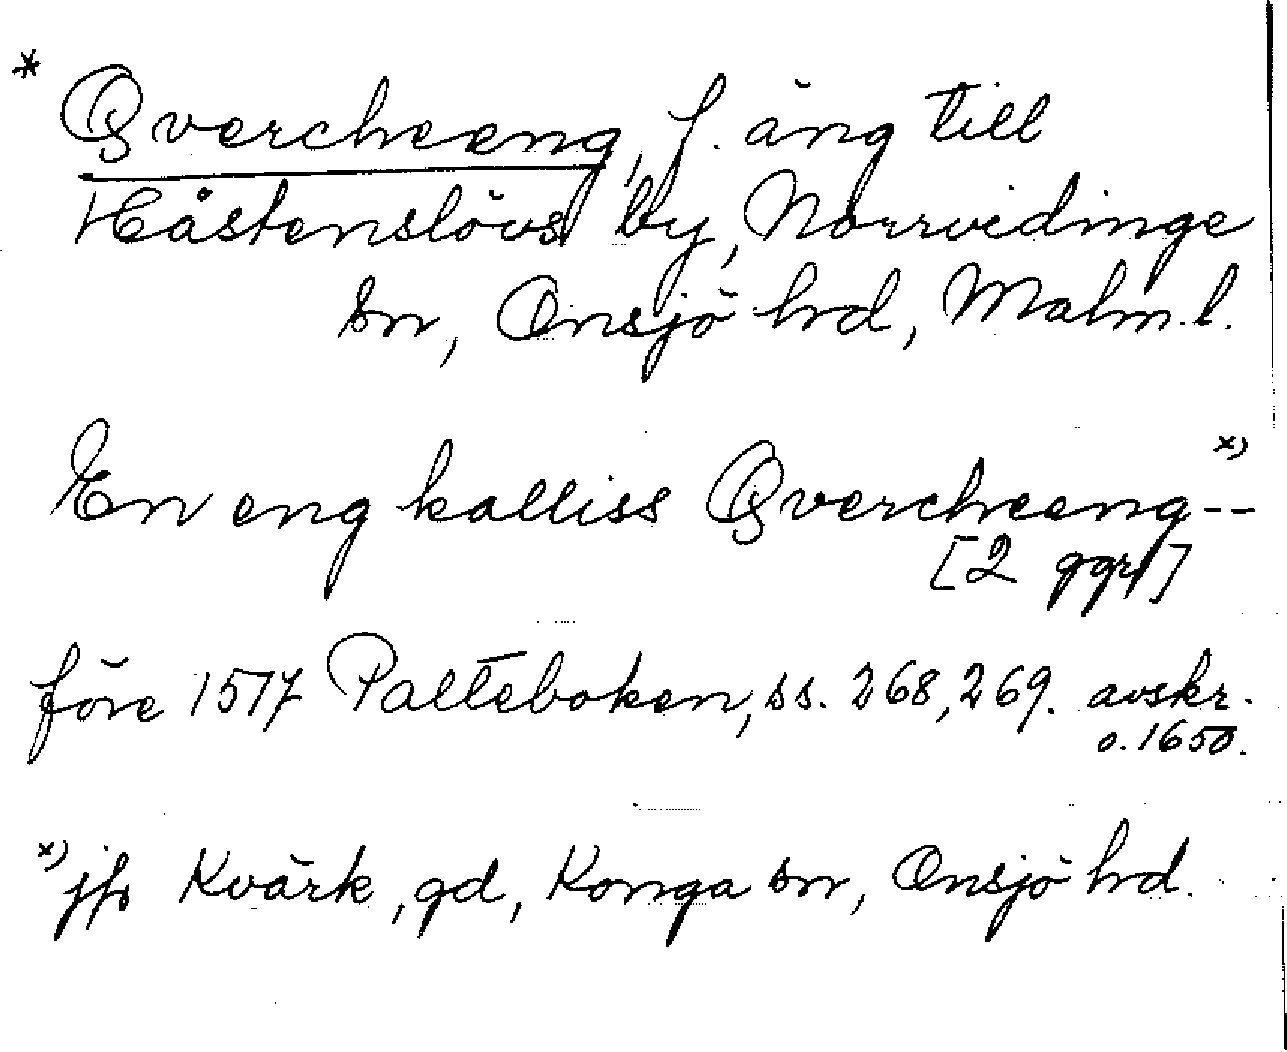 * Qvercheeng, f. äng till
Håstenslövs by, Norrvidinge
sn, Onsjö hrd, Malm.l.
En eng kalliss Qvercheeng -- x)
[2 ggr]
före 1517 Palteboken, ss. 268, 269. avskr.
o. 1650.
x) jfr Kvärk, gd, Konga sn, Onsjö hrd.